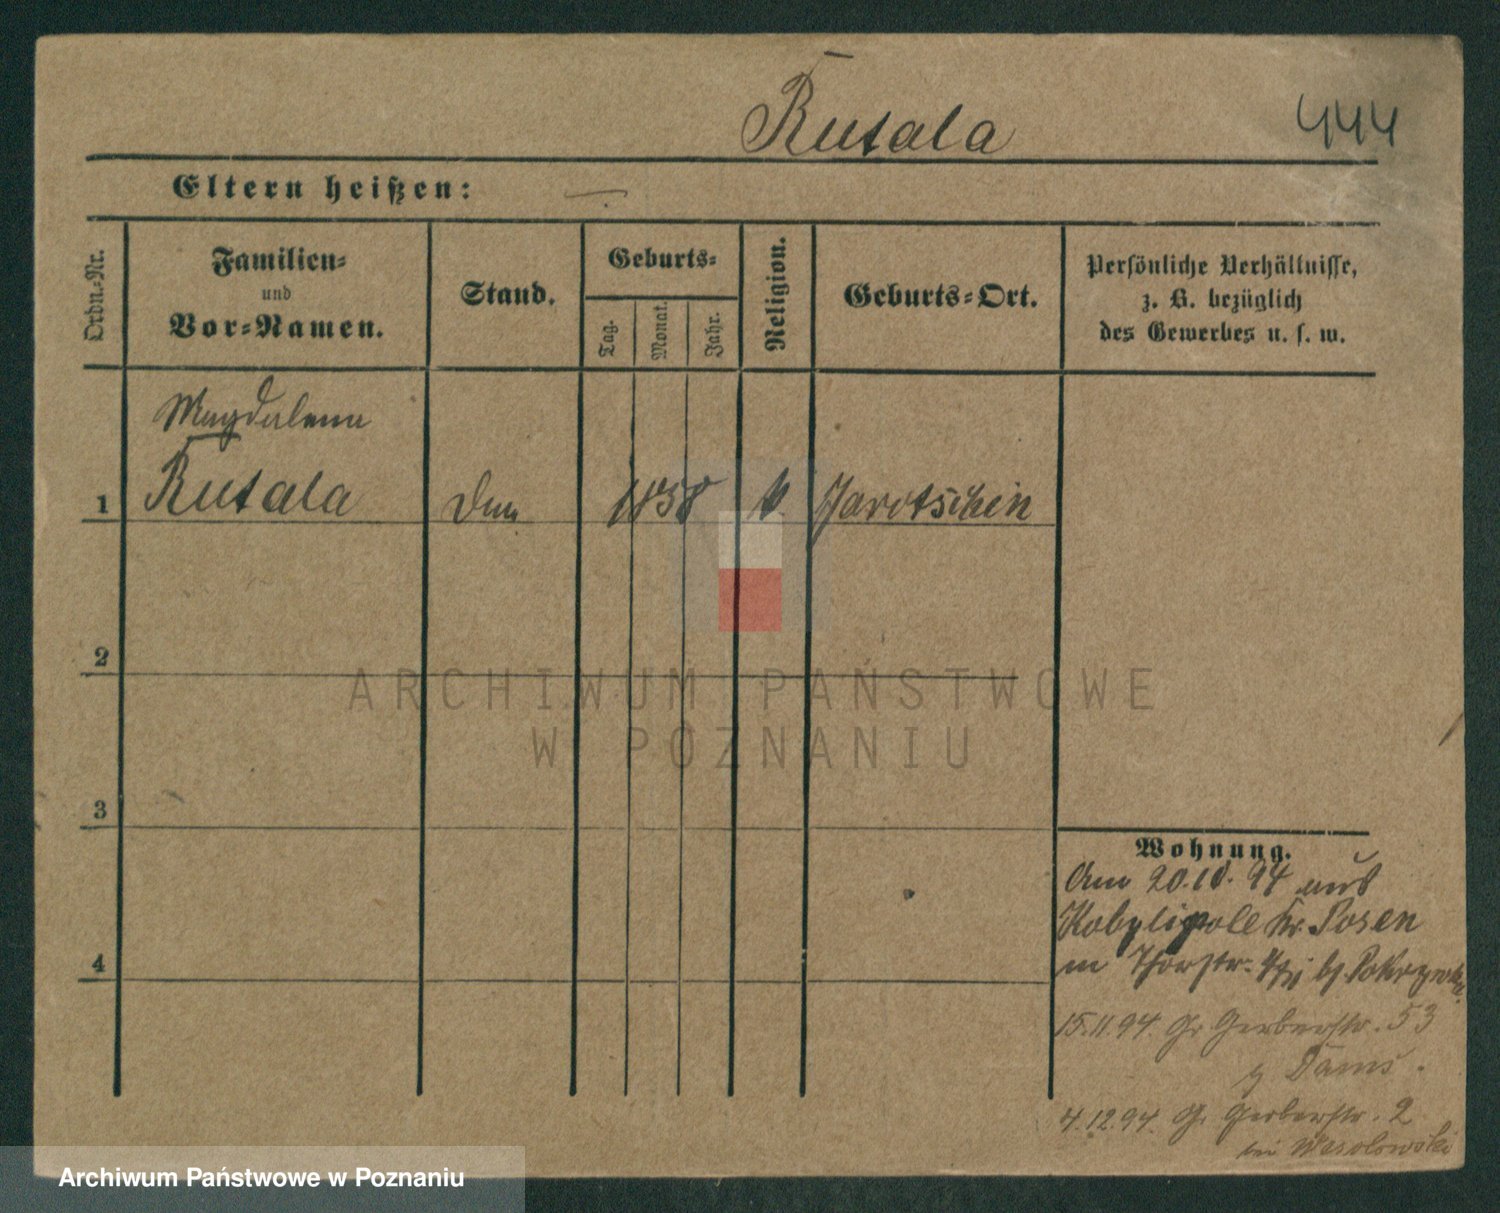 Rutala
444
Eltern heißen: —
Ordn.-Nr.
Familien-
und
Vor-Namen.
Stand.
Geburts-
Tag.
Monat.
Jahr.
Religion.
Geburts-Ort.
Persönliche Verhältnisse,
z. B. bezüglich
des Gewerbes u. s. w.
Magdalena
1 Rutala 1858 k. Jarotschin
2
3
4
Wohnung.
Am 20.10.94 aus
Kobylipole Kr. Posen
in Thorstr.
15.11.94. Gr Gerberstr. 53
Dams.
4.12.94. Gr. Gerberstr. 2
bei Wesolowski
ARCHIWUM PAŃSTWOWE
W POZNANIU
Archiwum Państwowe w Poznaniu